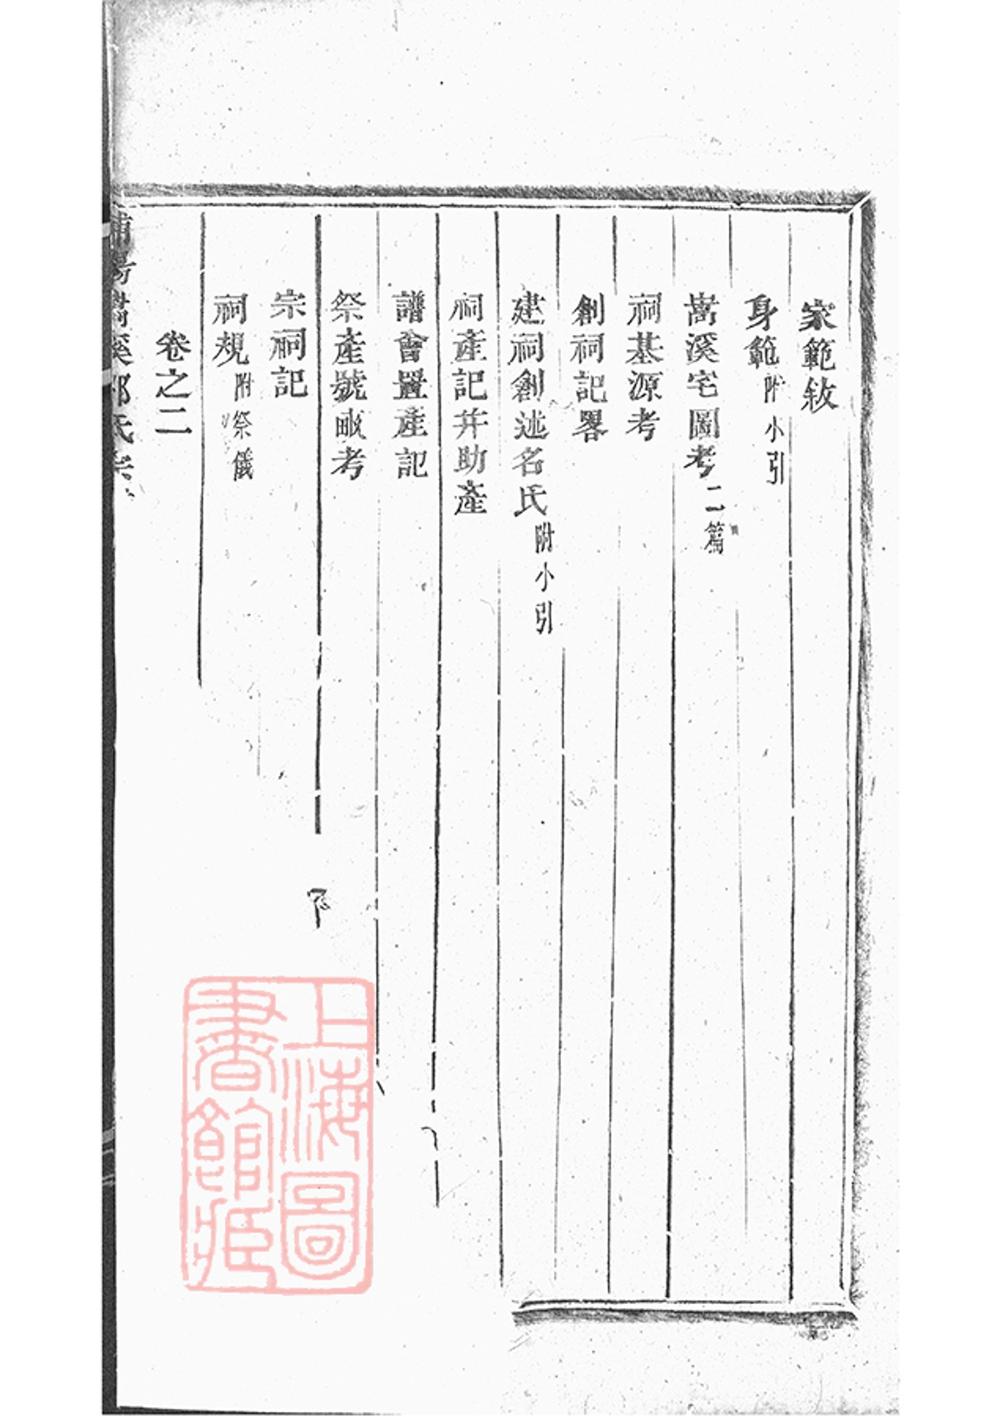 家範敘
身範附小引
嵩溪宅圖考二篇
祠基源考
創祠記畧
建祠創述名氏附小引
祠產記并助產
譜會置産記
祭產號畝考
宗祠記
祠規附祭儀
卷之二
上海圖
書館藏